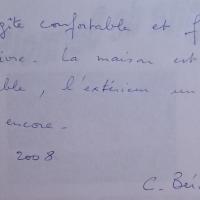 gîte confortable et f
ivre. La maison est
ble, l'extérieur un
encore.
2008
C. Bér